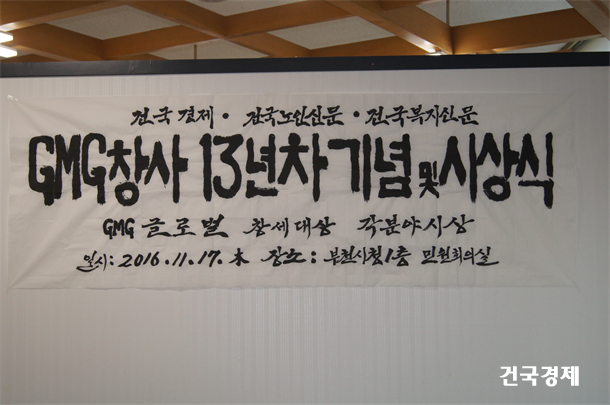 건국경제 · 건국노인신문 · 건국복지신문
GMG창사 13년차 기념 및 시상식
GMG 글로벌 창세대상 각분야시상
일시: 2016.11.17.木 장소: 부천시청1층 민원회의실
건국경제